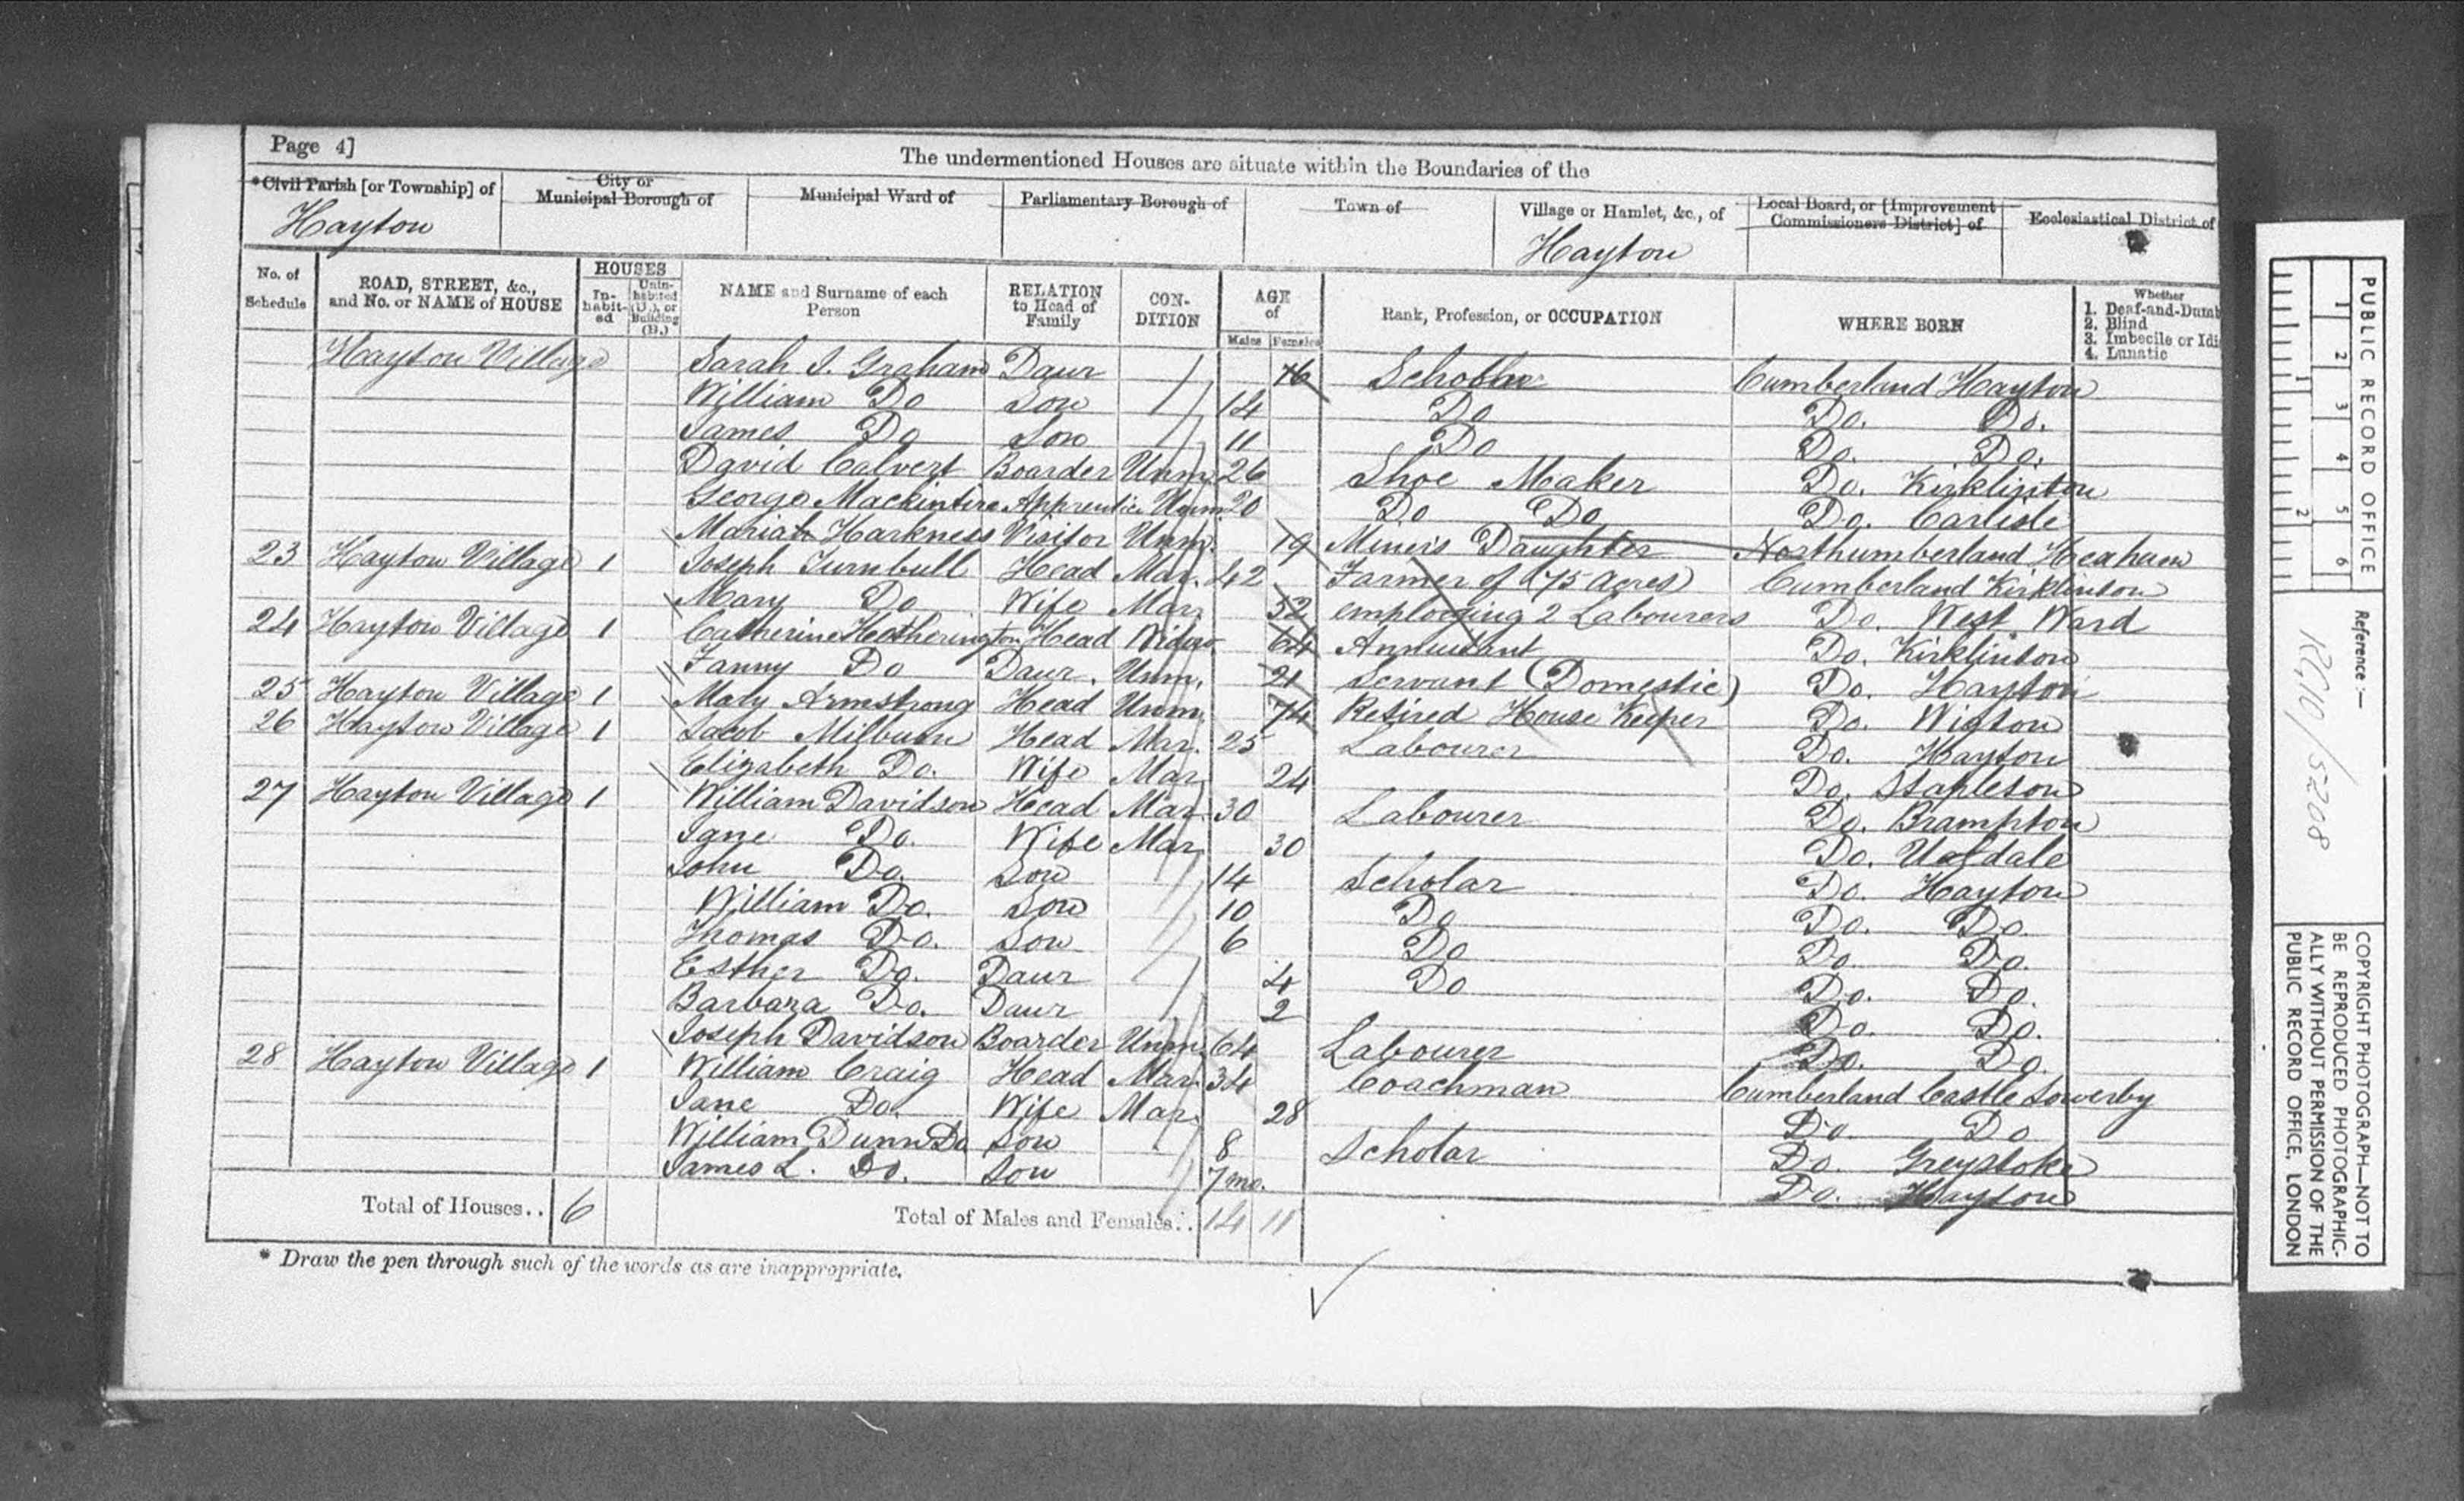 Page 4]
The undermentioned Houses are situate within the Boundaries of the
*Civil Parish [or Township] of
City or Municipal Borough of
Municipal Ward of
Parliamentary Borough of
Town of
Village or Hamlet, &c., of
Local Board, or [Improvement Commissioners District] of
Ecclesiastical District of
Hayton
Hayton
No. of Schedule
ROAD, STREET, &c., and No. or NAME of HOUSE
HOUSES
In-habit-ed
Unin-habited (U.), or Building (B.)
NAME and Surname of each Person
RELATION to Head of Family
CON-DITION
AGE of
Males Females
Rank, Profession, or OCCUPATION
WHERE BORN
Whether
1. Deaf-and-Dumb
2. Blind
3. Imbecile or Idi
4. Lunatic
Hayton Village Sarah J. Graham Daur 16 Scholar Cumberland Hayton
William Do Son 14 Do Do. Do.
James Do Son 11 Do Do. Do.
David Calvert Boarder Unm. 26 Shoe Maker Do. Kirklinton
George Mackintire Apprentice Unm. 20 Do Do Do. Carlisle
Mariah Harkness Visitor Unm. 19 Miner's Daughter Northumberland
23 Hayton Village 1 Joseph Turnbull Head Mar. 42 Farmer of (75 acres) Cumberland Kirklinton
Mary Do Wife Mar. 52 employing 2 Labourers Do. West Ward
24 Hayton Village 1 Catherine Hetherington Head Widow 64 Annuitant Do. Kirklinton
Fanny Do Daur. Unm. 21 Servant (Domestic) Do. Hayton
25 Hayton Village 1 Mary Armstrong Head Unm. 74 Retired House Keeper Do. Wigton
26 Hayton Village 1 Jacob Milburn Head Mar. 25 Labourer Do. Hayton
Elizabeth Do. Wife Mar. 24 Do. Stapleton
27 Hayton Village 1 William Davidson Head Mar. 30 Labourer Do. Brampton
Jane Do. Wife Mar. 30 Do. Uldale
John Do. Son 14 Scholar Do. Hayton
William Do. Son 10 Do Do. Do.
Thomas Do. Son 6 Do Do. Do.
Esther Do. Daur 4 Do Do. Do.
Barbara Do. Daur 2 Do. Do.
Joseph Davidson Boarder Unm. 64 Labourer Do. Do.
28 Hayton Village 1 William Craig Head Mar. 34 Coachman Cumberland Castle Sowerby
Jane Do. Wife Mar. 28 Do Do
William Dunn Do Son 8 Scholar Do. Greystoke
James L. Do. Son 7 mo. Do. Hayton
Total of Houses.. 6
Total of Males and Females.. 14 11
* Draw the pen through such of the words as are inappropriate.
PUBLIC RECORD OFFICE
1 2 3 4 5 6
1 2
Reference:—
RG10/5208
COPYRIGHT PHOTOGRAPH—NOT TO
BE REPRODUCED PHOTOGRAPHIC-
ALLY WITHOUT PERMISSION OF THE
PUBLIC RECORD OFFICE, LONDON